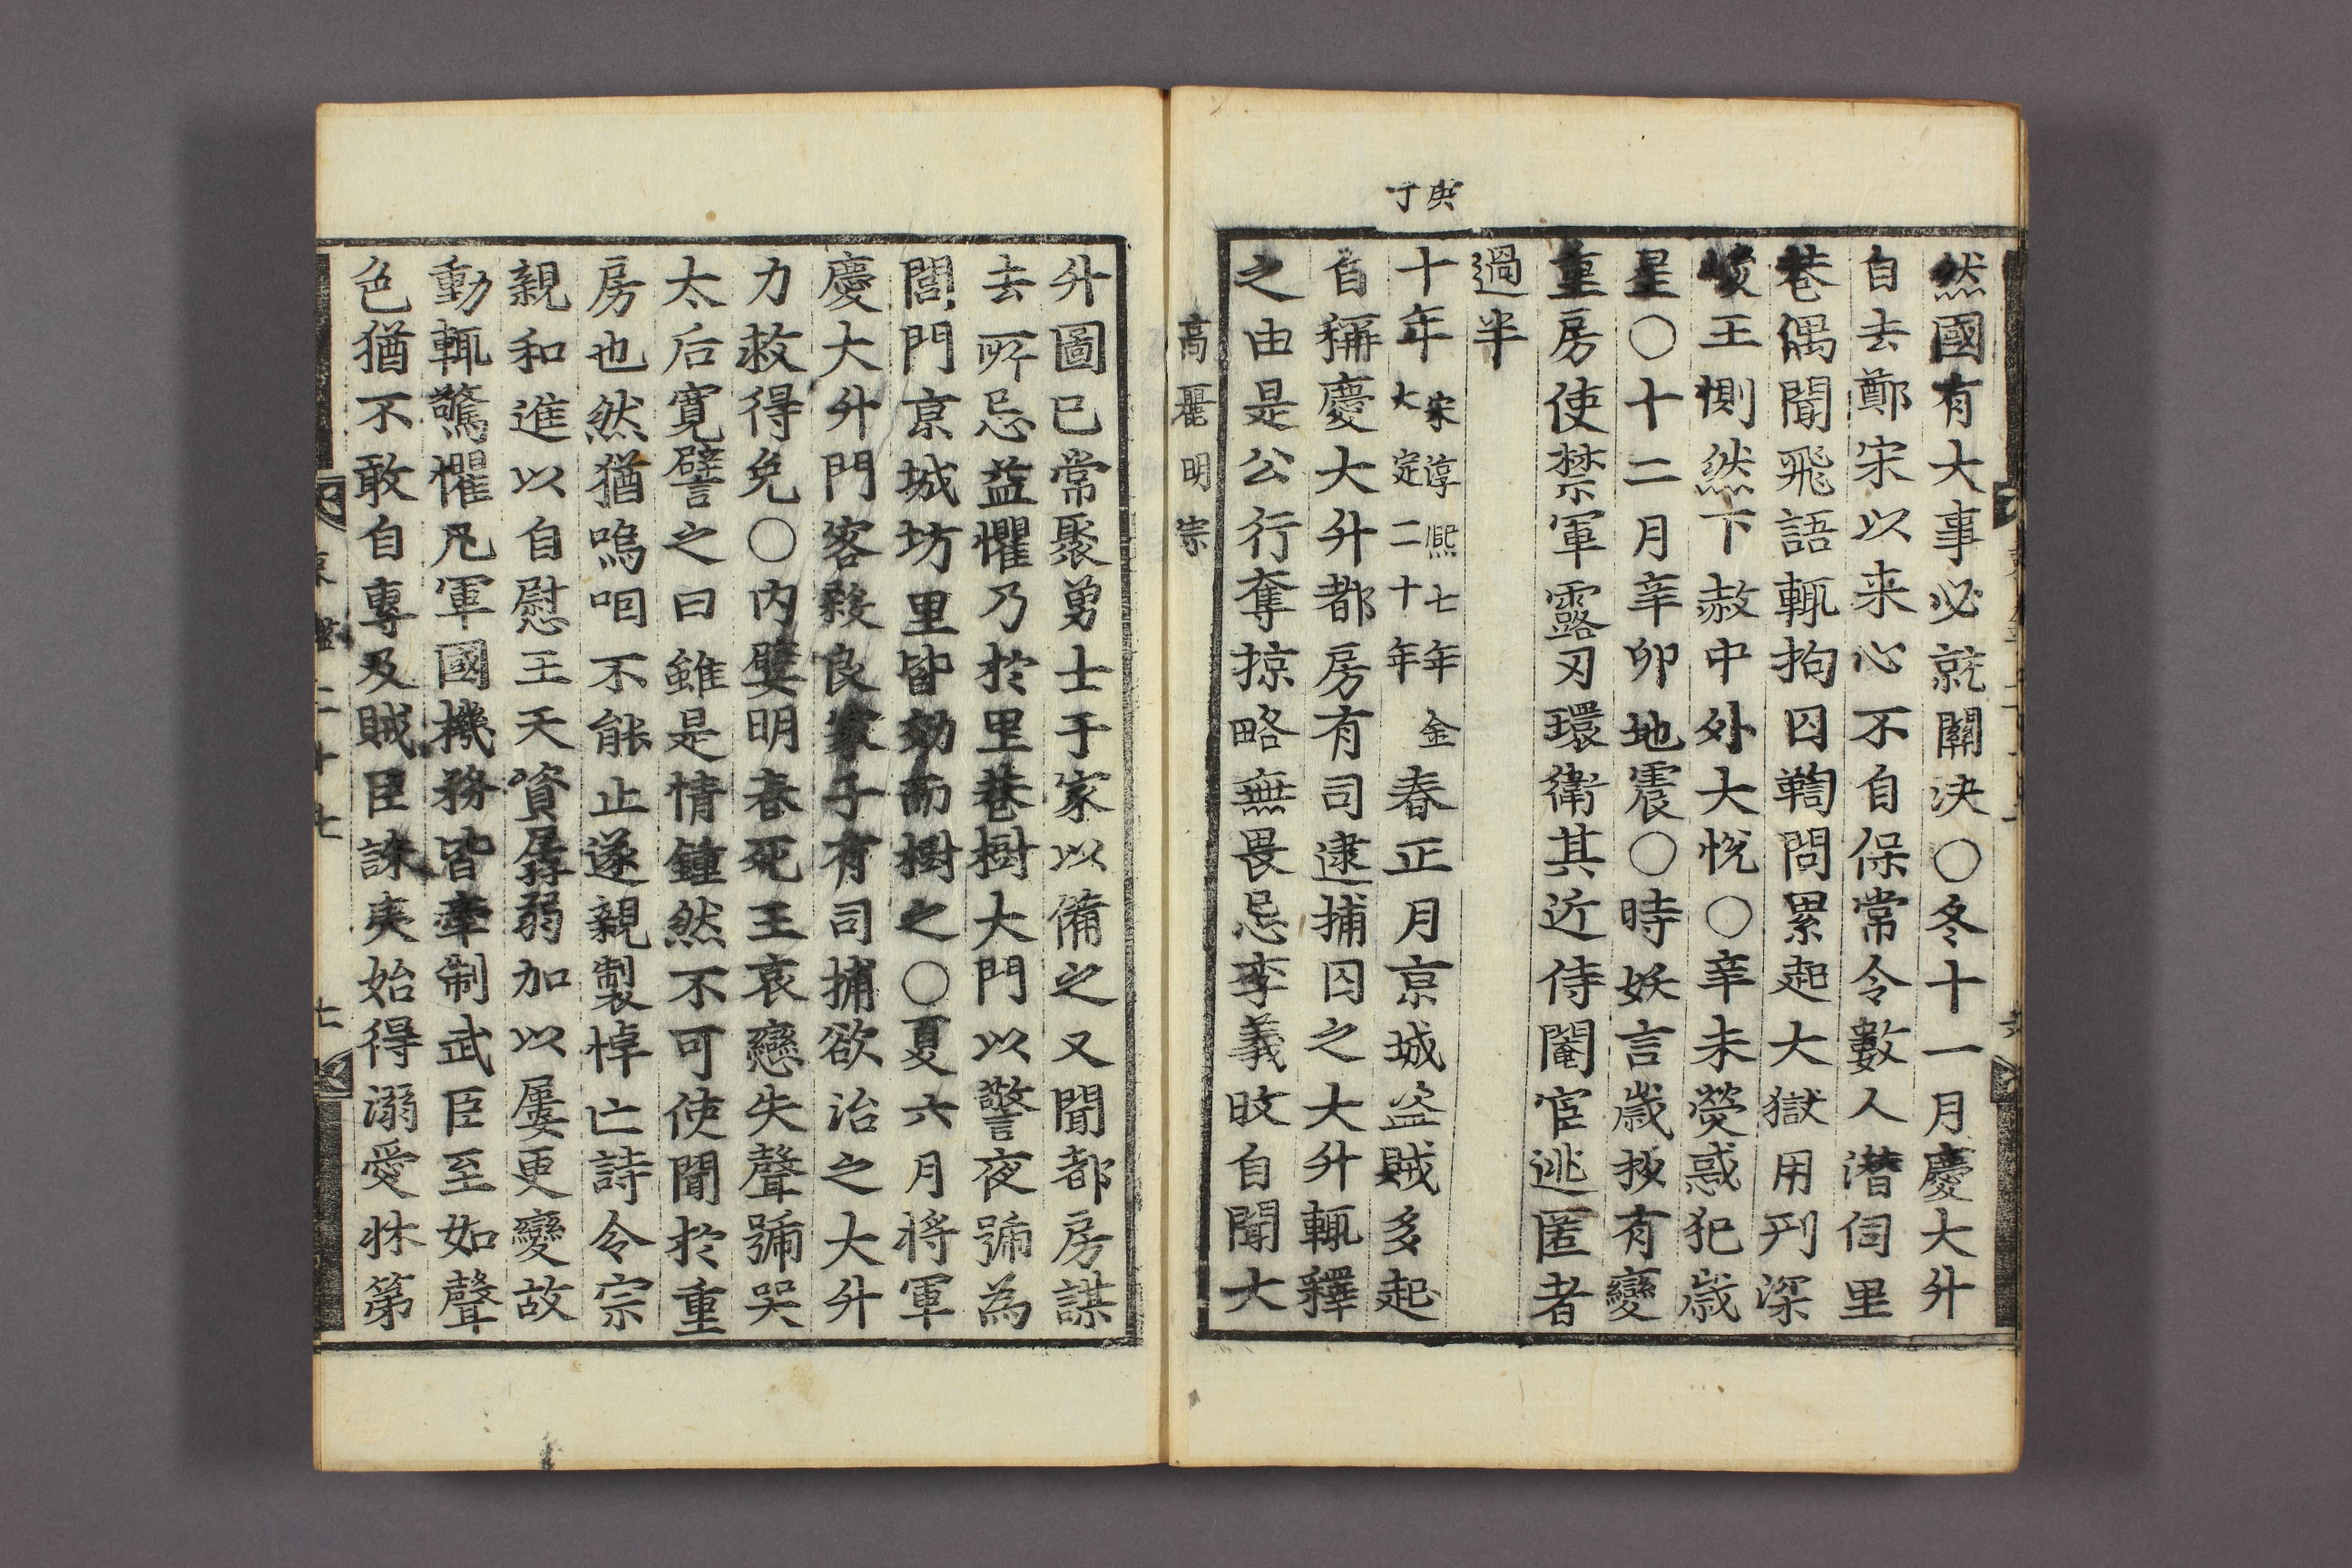 然國有大事必就關決○冬十一月慶大升
自去鄭宋以来心不自保常令數人潛伺里
巷偶聞飛語輒拘囚鞫問累起大獄用刑深
峻王惻然下赦中外大悅○辛未熒惑犯歲
星○十二月辛卯地震○時妖言歲抄有變
重房使禁軍露刃環衛其近侍閹宦逃匿者
過半
庚
丁
十年宋淳熙七年金大定二十年春正月京城盗賊多起
自稱慶大升都房有司逮捕囚之大升輒釋
之由是公行奪掠略無畏忌李義旼自聞大
高麗明宗
升圖已常聚勇士于家以備之又聞都房謀
去所忌益懼乃於里巷樹大門以警夜號為
閭門京城坊里皆効而樹之○夏六月將軍
慶大升門客殺良家子有司捕欲治之大升
力救得免○內嬖明春死王哀戀失聲號哭
太后寬譬之曰雖是情鍾然不可使聞於重
房也然猶嗚咽不能止遂親製悼亡詩令宗
親和進以自慰王天資孱弱加以屢更變故
動輒驚懼凡軍國機務皆牽制武臣至如聲
色猶不敢自專及賊臣誅夷始得溺愛牀第
二十七
七